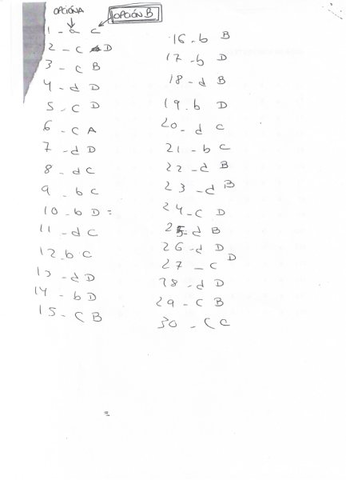 OPCIÓN A
OPCIÓN B
1 - a C
2 - C D
3 - C B
4 - d D
5 - C D
6 - C A
7 - d D
8 - d C
9 - b C
10 - b D
11 - d C
12. b C
13 - d D
14 - b D
15 - C B
16 - b B
17 - b D
18 - d B
19. b D
20 - d C
21 - b C
22 - d B
23 - d B
24 - C D
25 - d B
26 - d D
27 - C D
28 - d D
29 - C B
30 - C C